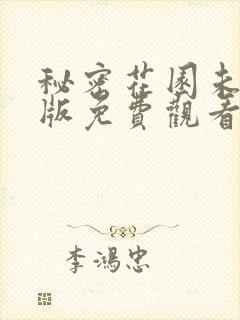 秘密花園未
版免費觀看
李鴻忠